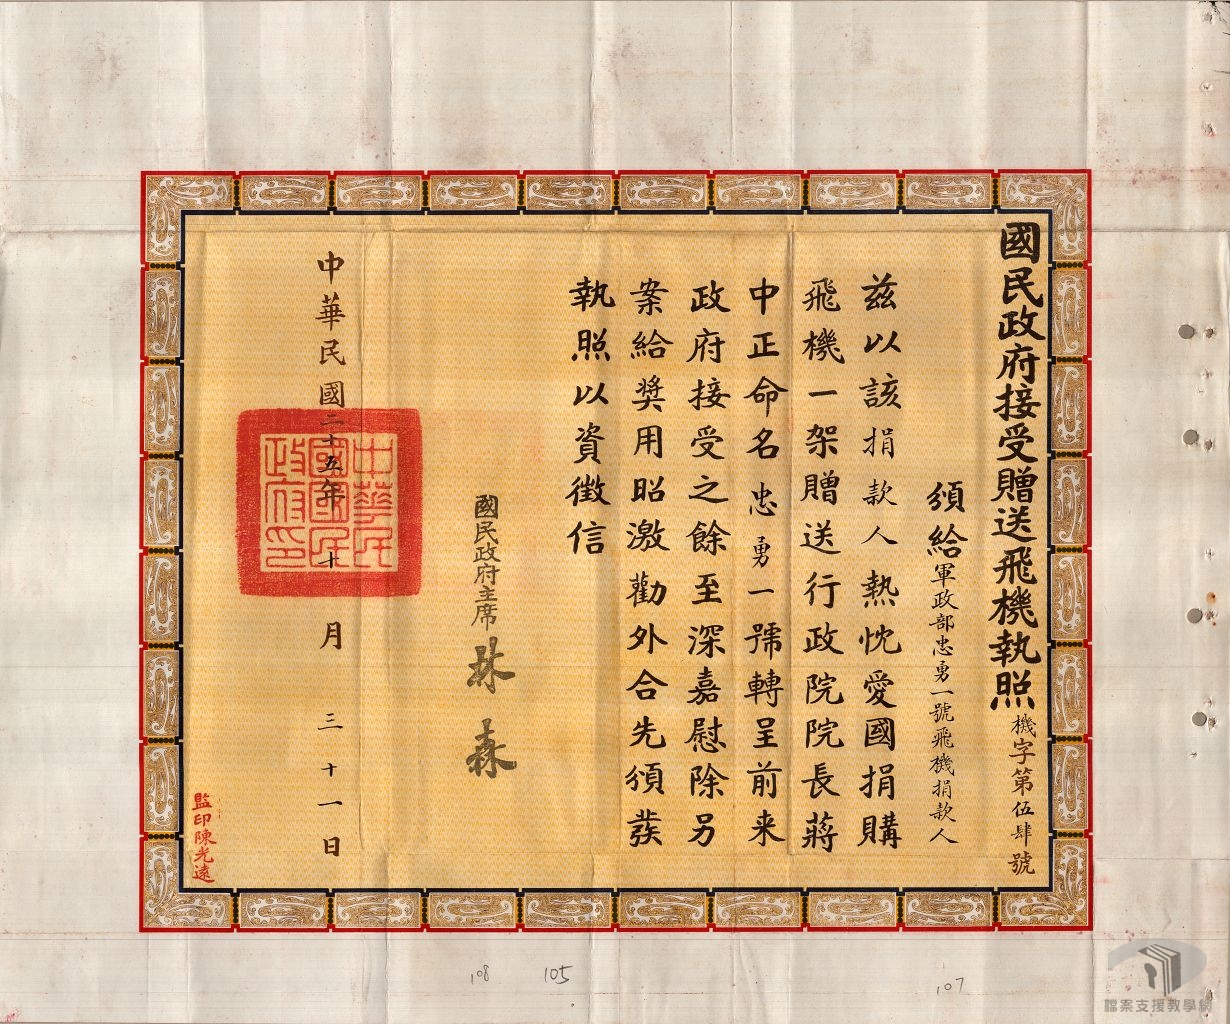 國民政府接受贈送飛機執照 機字第伍肆號
頒給軍政部忠勇一號飛機捐款人
茲以該捐款人熱忱愛國捐購
飛機一架贈送行政院院長蔣
中正命名忠勇一號轉呈前来
政府接受之餘至深嘉慰除另
案給獎用昭激勸外合先頒發
執照以資徵信
國民政府主席
林森
中華民國二十五年十月三十一日
中華民
國國民
政府印
監印陳光遠
108
105
107
檔案支援教學網